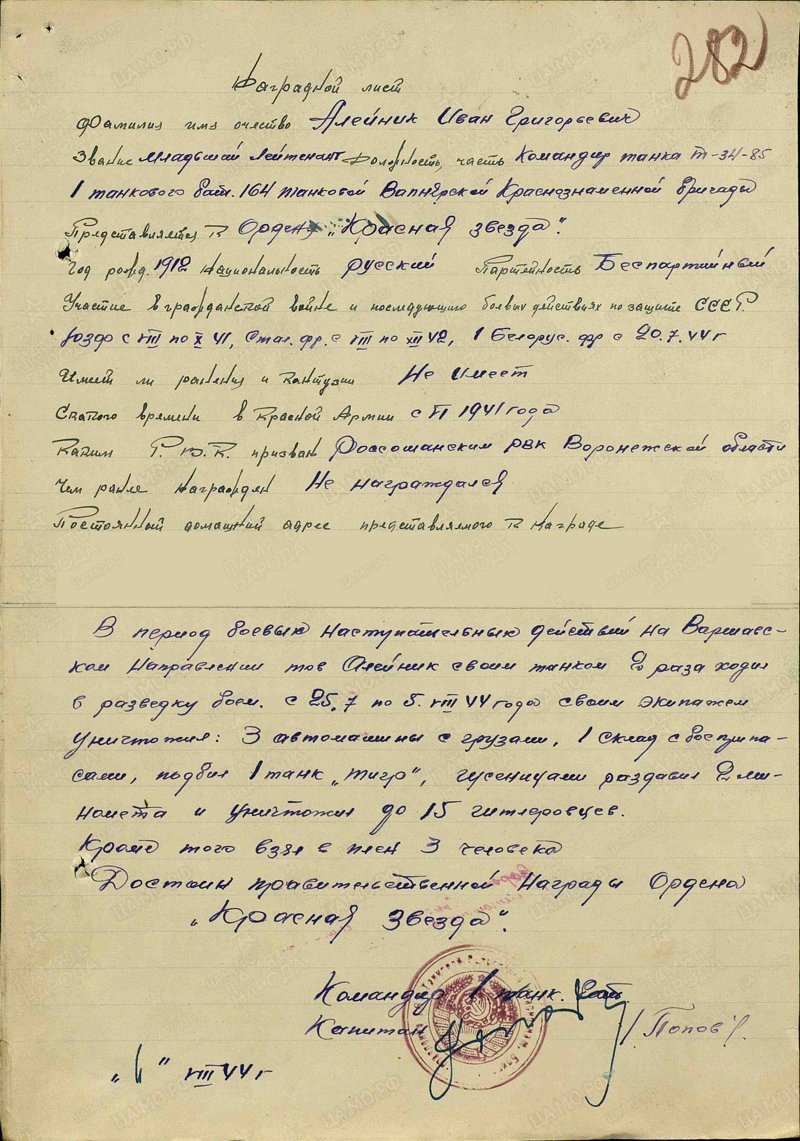 282
Наградной лист
Фамилия имя очество Алейник Иван Григорьевич
Звание Младьший Лейтенант Должность, часть Командир танка Т-34-85
1 танкового бат. 164 танковой Вапнярской Краснознаменной бригады
Представляется к Ордену „Красная звезда".
Год рожд. 1912 Национальность русский Партейность Беспартийный
Участие в гражданской войне и последующих боевых действиях по защите СССР.
Юзфр с VIII по X 41, Стал. фр. с VIII по XII 42, 1 Белорус. фр с 20.7.44 г
Имеет ли ранения и контузии Не имеет
С какого времени в Красной Армии с VI 1941 года
Каким Р.В.К. призван Россошанским РВК Воронежской области
Чем ранее награжден Не награждался
Постоянный домашний адрес представляемого к награде
В период боевых наступательных действий на Варшавс-
ком направлении тов Алейник своим танком 2 раза ходил
в разведку боем. с 25.7 по 5. VIII 44 года своим экипажем
уничтожил: 3 автомашины с грузами, 1 склад с боеприпа-
сами, подбил 1 танк „тигр", гусеницами раздавил 2 ми-
номета и уничтожил до 15 гитлеровцев.
Кроме того взял в плен 3 человека
Достоин правительственной Награды Ордена
„Красная Звезда".
Командир 1 танк. бат.
Капитан /Попов/.
" VIII 44 г